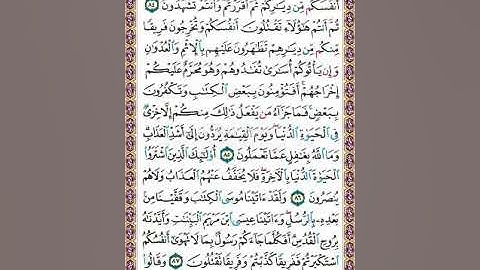 أَنفُسَكُم مِّن دِيَـٰرِكُمْ ثُمَّ أَقْرَرْتُمْ وَأَنتُمْ تَشْهَدُونَ ٨٤
ثُمَّ أَنتُمْ هَـٰٓؤُلَآءِ تَقْتُلُونَ أَنفُسَكُمْ وَتُخْرِجُونَ فَرِيقًا
مِّنكُم مِّن دِيَـٰرِهِمْ تَظَـٰهَرُونَ عَلَيْهِم بِٱلْإِثْمِ وَٱلْعُدْوَٰنِ
وَإِن يَأْتُوكُمْ أُسَـٰرَىٰ تُفَـٰدُوهُمْ وَهُوَ مُحَرَّمٌ عَلَيْكُمْ
إِخْرَاجُهُمْ ۚ أَفَتُؤْمِنُونَ بِبَعْضِ ٱلْكِتَـٰبِ وَتَكْفُرُونَ
بِبَعْضٍ ۚ فَمَا جَزَآءُ مَن يَفْعَلُ ذَٰلِكَ مِنكُمْ إِلَّا خِزْىٌ
فِى ٱلْحَيَوٰةِ ٱلدُّنْيَا ۖ وَيَوْمَ ٱلْقِيَـٰمَةِ يُرَدُّونَ إِلَىٰٓ أَشَدِّ ٱلْعَذَابِ ۗ
وَمَا ٱللَّهُ بِغَـٰفِلٍ عَمَّا تَعْمَلُونَ ٨٥ أُو۟لَـٰٓئِكَ ٱلَّذِينَ ٱشْتَرَوُا۟
ٱلْحَيَوٰةَ ٱلدُّنْيَا بِٱلْـَٔاخِرَةِ ۖ فَلَا يُخَفَّفُ عَنْهُمُ ٱلْعَذَابُ وَلَا هُمْ
يُنصَرُونَ ٨٦ وَلَقَدْ ءَاتَيْنَا مُوسَى ٱلْكِتَـٰبَ وَقَفَّيْنَا مِنۢ
بَعْدِهِۦ بِٱلرُّسُلِ ۖ وَءَاتَيْنَا عِيسَى ٱبْنَ مَرْيَمَ ٱلْبَيِّنَـٰتِ وَأَيَّدْنَـٰهُ
بِرُوحِ ٱلْقُدُسِ ۗ أَفَكُلَّمَا جَآءَكُمْ رَسُولٌۢ بِمَا لَا تَهْوَىٰٓ أَنفُسُكُمُ
ٱسْتَكْبَرْتُمْ فَفَرِيقًا كَذَّبْتُمْ وَفَرِيقًا تَقْتُلُونَ ٨٧ وَقَالُوا۟